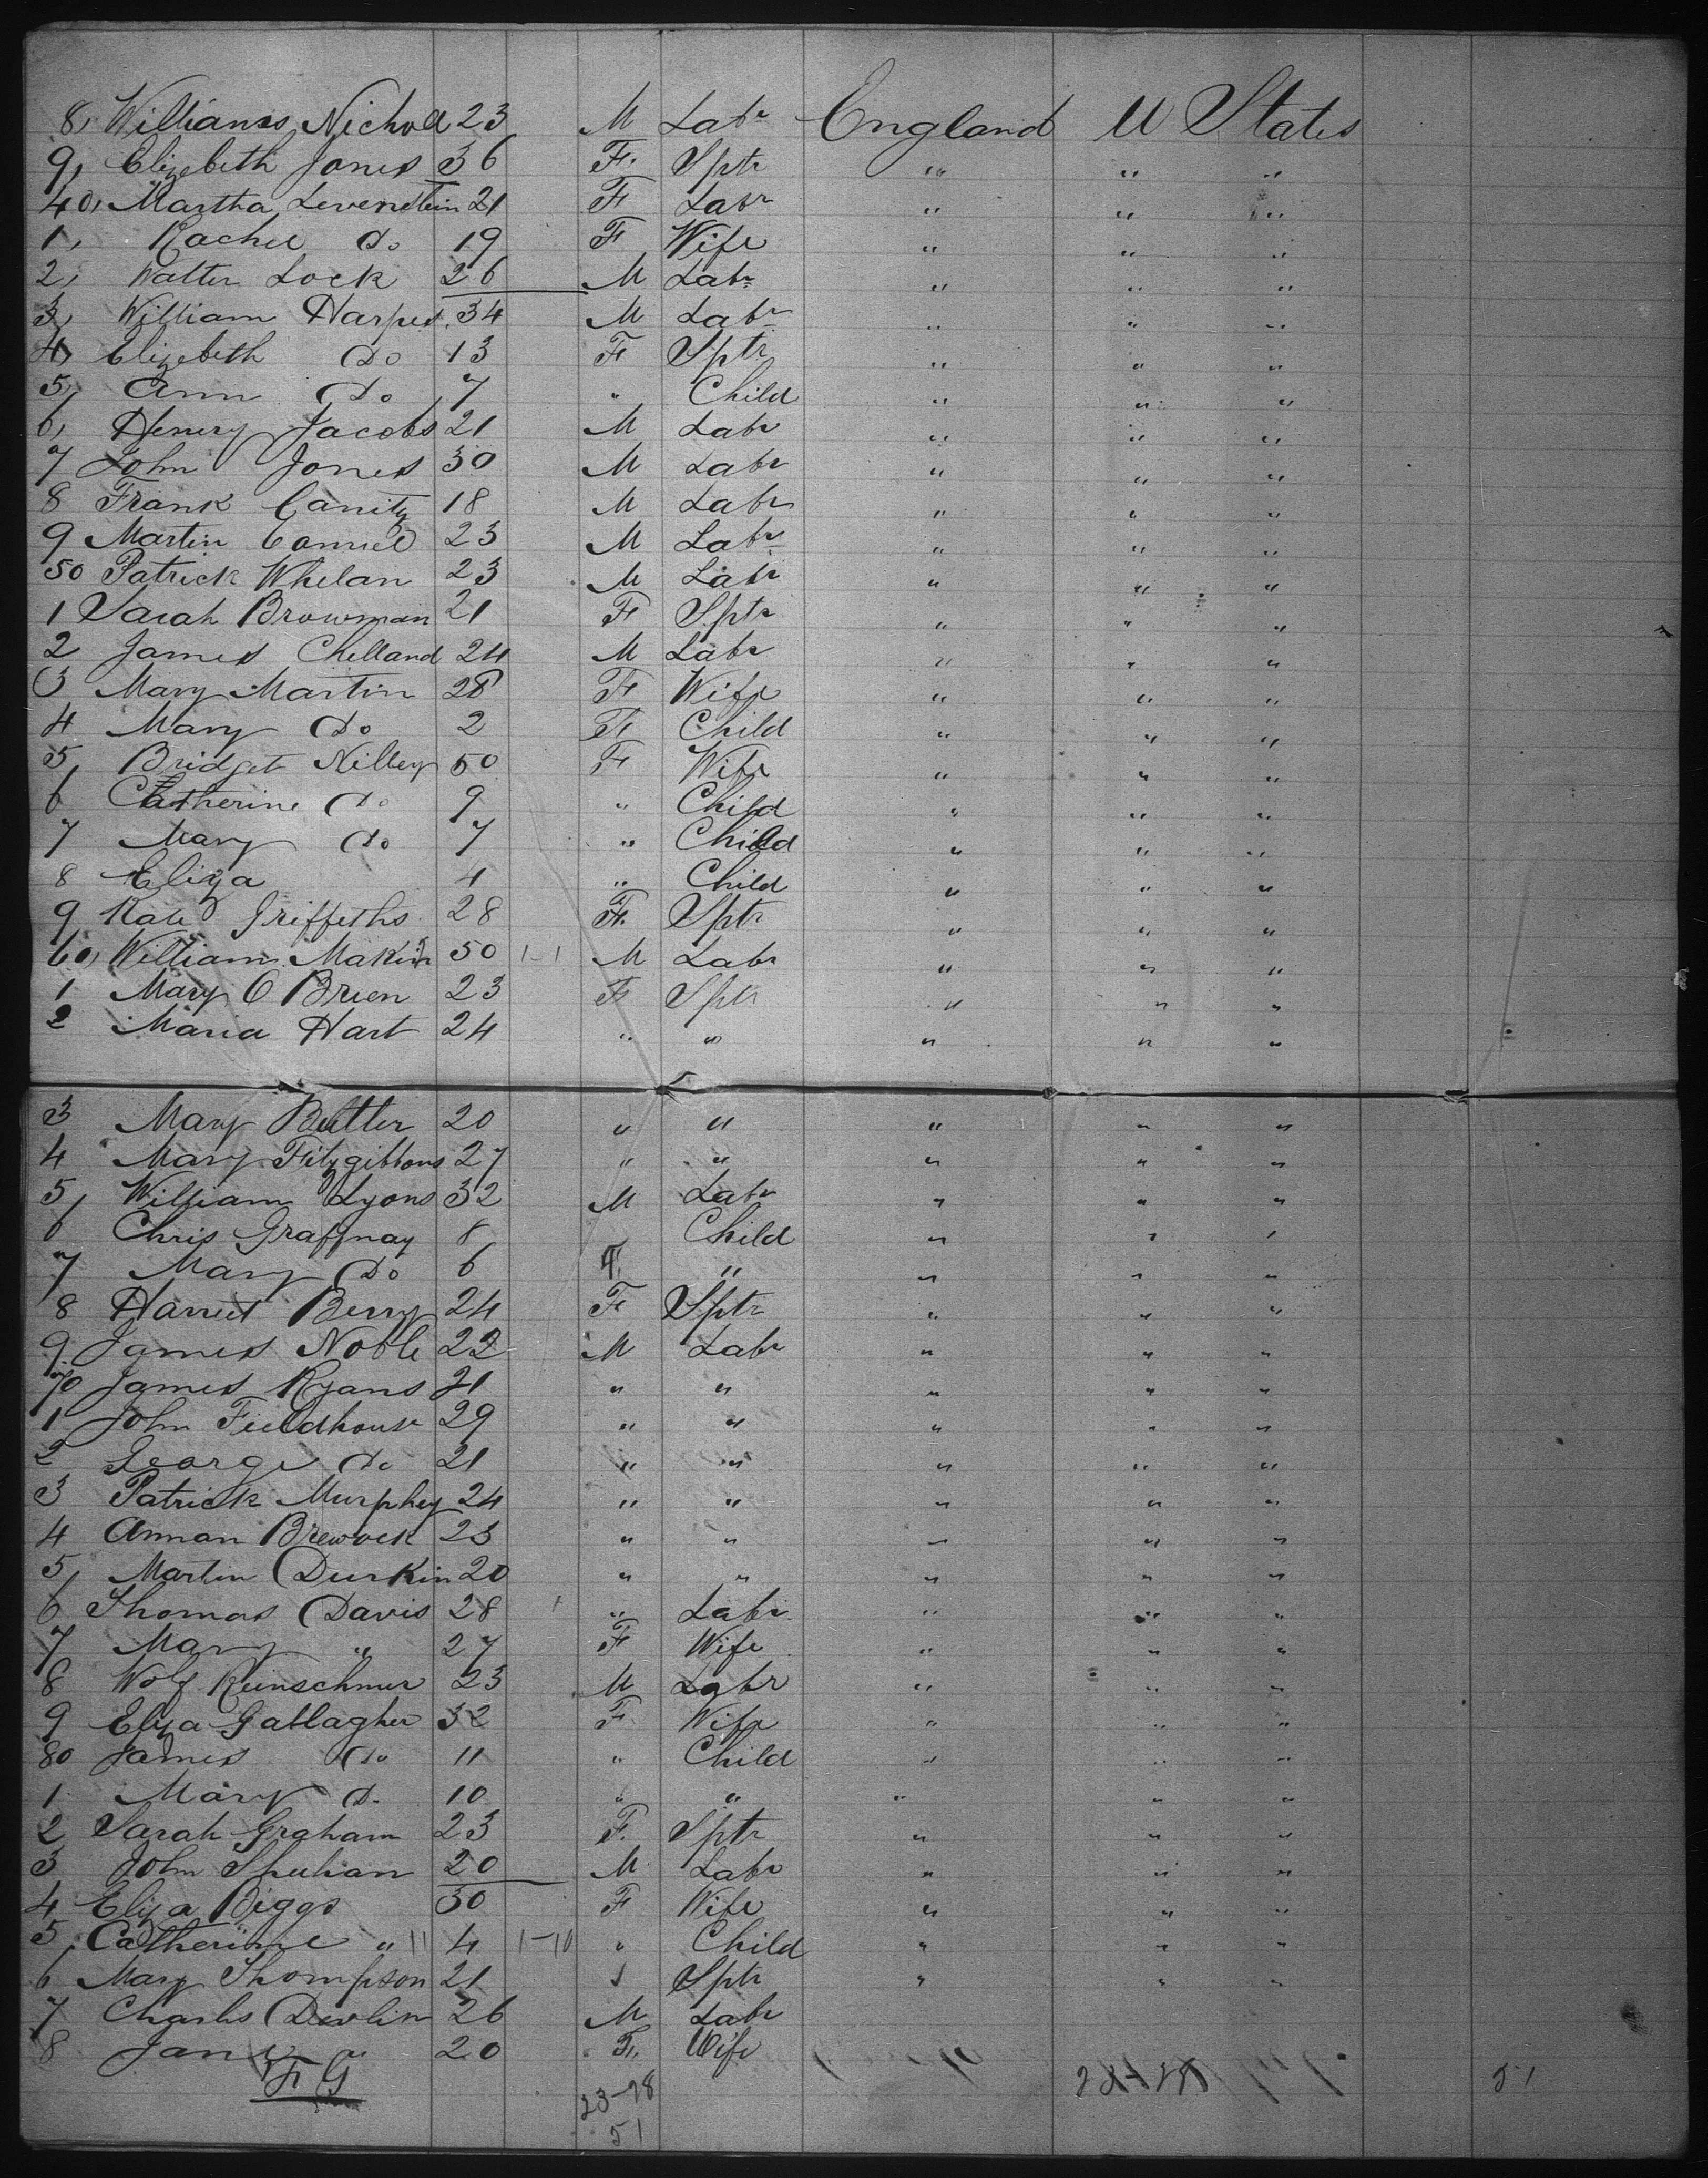 8, Williams Nichol 23 M Labr England U States
9, Elizebeth Jones 36 F. Sptr " " "
40, Martha Levenstein 21 F Labr " " "
1, Rachel Do 19 F Wife " " "
2, Walter Lock 26 M Labr " " "
3, William Harper 34 M Labr " " "
4, Elizebeth Do 13 F Sptr " " "
5, Ann Do 7 " Child " " "
6, Henery Jacobs 21 M Labr " " "
7 John Jones 30 M Labr " " "
8 Frank Canity 18 M Labr " " "
9 Martin 23 M Labr " " "
50 Patrick Whelan 23 M Labr " " "
1 Sarah Browman 21 F Sptr " " "
2 James Chelland 24 M Labr " " "
3 Mary Martin 28 F Wife " " "
4 Mary Do 2 F Child " " "
5, Bridget 50 F Wife " " "
6 Catherine Do 9 " Child " " "
7 Mary Do 7 " Child " " "
8 Eliza 4 " Child " " "
9 Kate Griffeths 28 F. Sptr " " "
60, William Makin 50 1-1 M Labr " " "
1 Mary O Brien 23 F Sptr " " "
2 Maria Hart 24 " " " " "
3 Mary Butler 20 " " " " "
4 Mary Fitzgibbons 27 " " " " "
5, William Lyons 32 M Labr " " "
6 Chris Graffnay 8 Child " " "
7 Mary Do 6 F. " " " "
8 Harriet Berry 24 F Sptr " " "
9 James Noble 22 M Labr " " "
70 James Ryans 21 " " " " "
1 John Fieldhouse 29 " " " " "
2 George Do 21 " " " " "
3 Patrick Murphey 24 " " " " "
4 Annan 23 " " " " "
5, Martin Durkin 20 " " " " "
6 Thomas Davis 28 " Labr " " "
7 Mary " 27 F Wife " " "
8 Wolf 23 M Labr " " "
9 Eliza Gallagher 32 F Wife " " "
80 James Do 11 " Child " " "
1 Mary D. 10 " " " " "
2 Sarah Graham 23 F. Sptr " " "
3 John 20 M Labr " " "
4 Eliza Biggs 30 F Wife " " "
5, Catherine " 11 4 1-10 " Child " " "
6 Mary Thompson 21 Sptr " " "
7 Charls Devlin 26 M Labr
8 Jane 20 F. Wife
F G
23-28
51
51